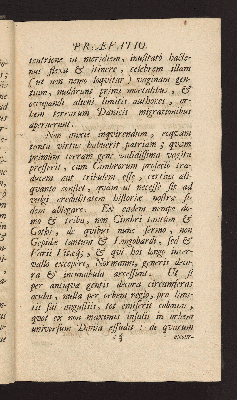 PRÆFATIO.
tentrione in meridiem, inusitatô hacte-
nus flexu & itinere, celebrem illam
(ut non nemo loquitur) vaginam gen-
tium, migârunt primi mortalium, &
occupandi alieni limitis authores, or-
bem terrarum Danicis migrationibus
aperuerunt.
Non anxiè inquirendum, cujusnam
tanta virtus habuerit patriam; quam
primum terram gens validissima vagita
presserit, cum Cimbrorum profectio non
ducem aut tribulem esse, certius ali-
quanto constet, quàm ut necesse sit ad
vulgi credulitatem historiæ nostræ fi-
dem allegare. Ex eadem nempe do-
mo & tribu, non Cimbri tantùm &
Gothi, de quibus nunc sermo, non
Gepidæ tantùm & Longobardi, sed &
Varii Vitæq;, & qui hos longo inter-
vallo excepere, Normanni, generis deco-
ra & incunabula arcessunt. Ut si
per antiqua gentis decora circumferas
oculos, nulla per orbem regio, pro limi-
tis sui angustiis, tot emiserit colonias,
quot ex non maximis insulis in orbem
universum Dania effudit: de quarum